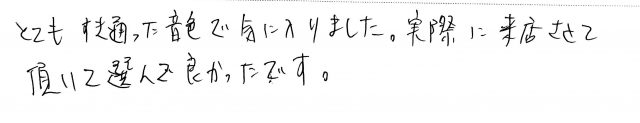 とても すき通った音色で気に入りました。実際に来店させて
頂いて選んで良かったです。